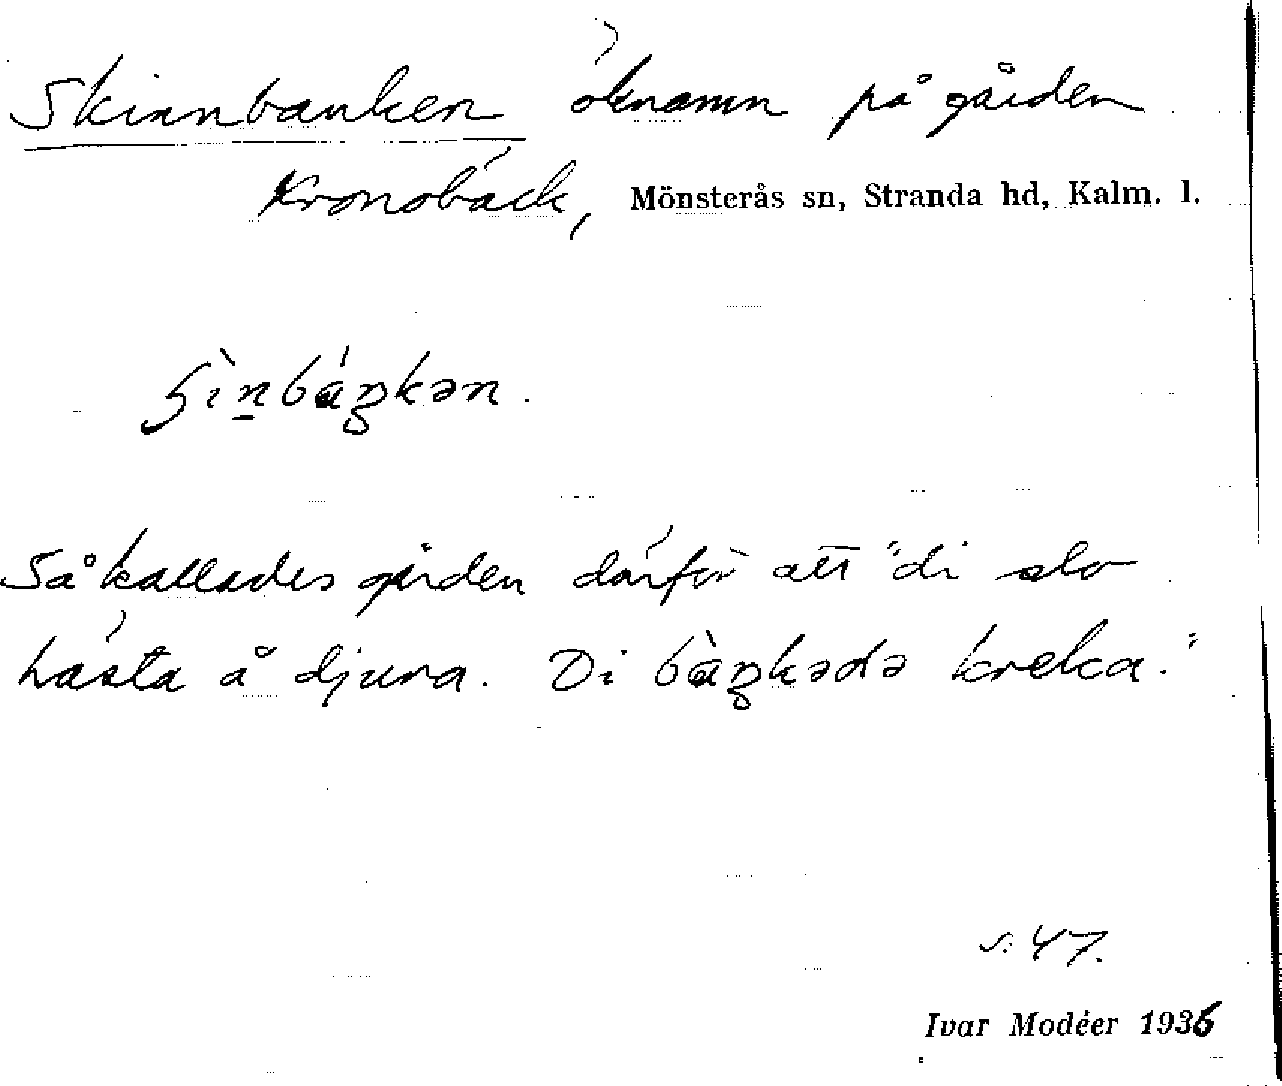 Skinnbanken öknamn på gården
Kronobäck, Mönsterås sn, Stranda hd, Kalm. l.
ʂìn̠báŋkən.
Så kallades gården därför att "di slo
hästa å djura. Di bàŋkədə kreka."
s. 47.
Ivar Modéer 1936